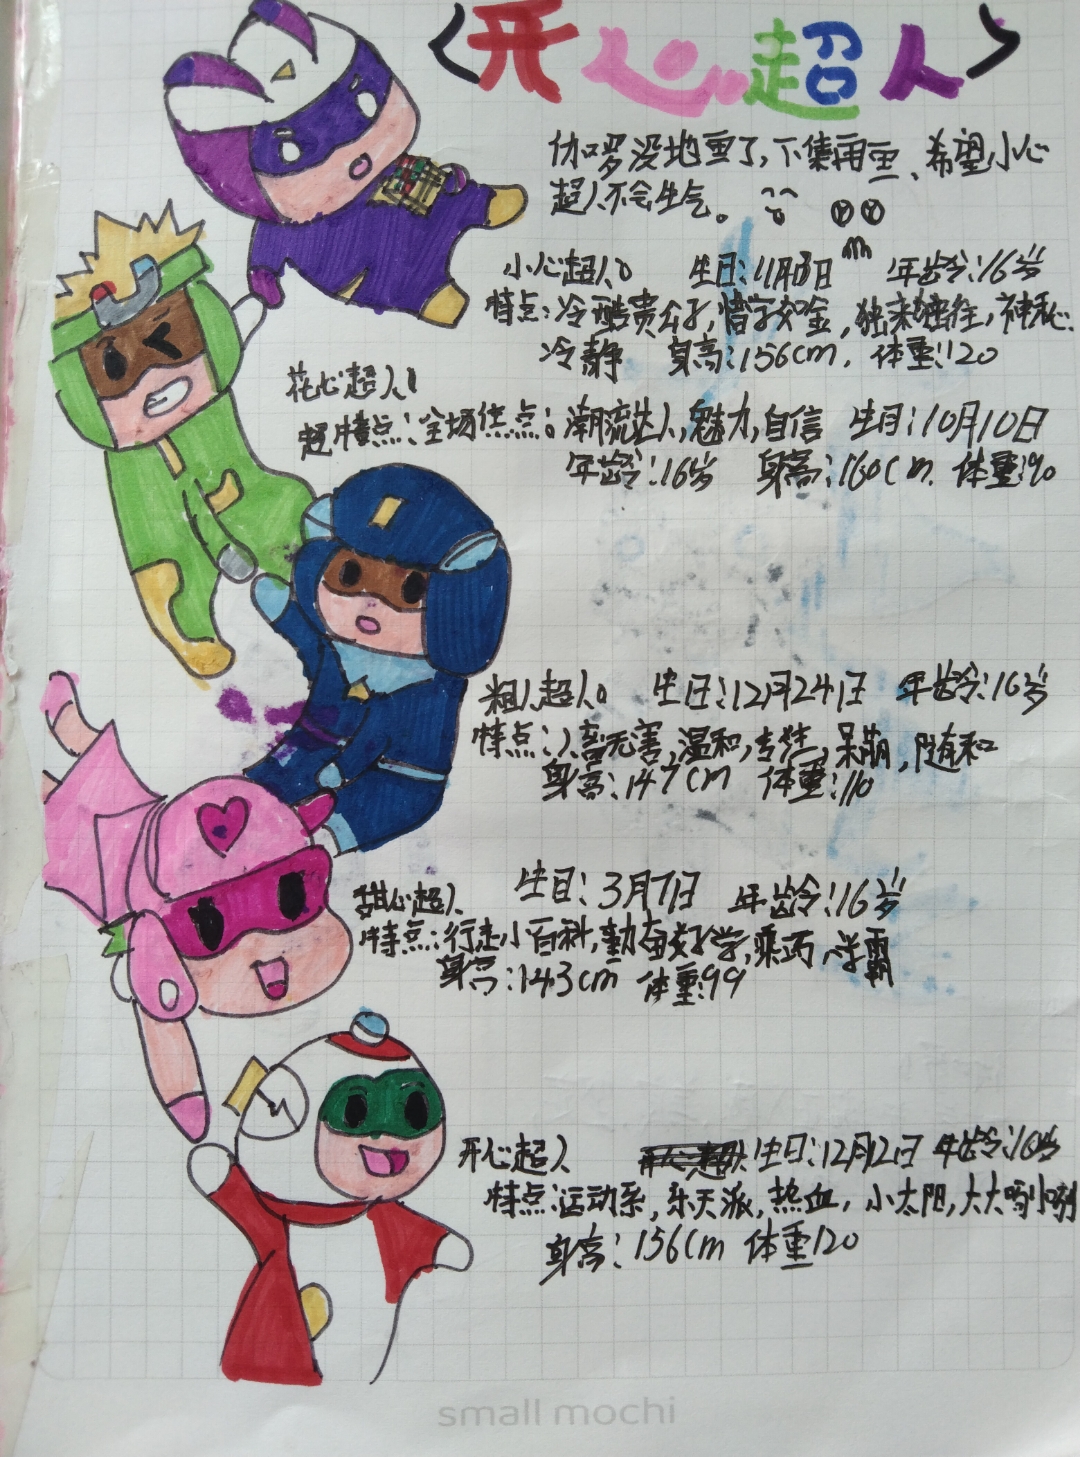 〈开心超人〉
伽罗没地画了,下集再画、希望小心
超人不会生气。
小心超人。 生日:11月8日 年龄:16岁
特点:冷酷贵公子,惜字如金,独来独往,神秘.
冷静 身高:156cm. 体重:120
花心超人
特点:全场焦点。潮流达人,魅力,自信 生日:10月10日
年龄:16岁 身高:160cm. 体重:90
粗心超人。 生日:12月24日 年龄:16岁
特点:人畜无害,温和,专注,呆萌,随和
身高:147cm 体重:110
甜心超人 生日:3月7日 年龄:16岁
特点:行走小百科,勤奋好学,乖巧,学霸
身高:143cm 体重:99
开心超人 生日:12月12日 年龄:16岁
特点:运动系,乐天派,热血,小太阳,大大咧咧
身高:156cm 体重120
small mochi